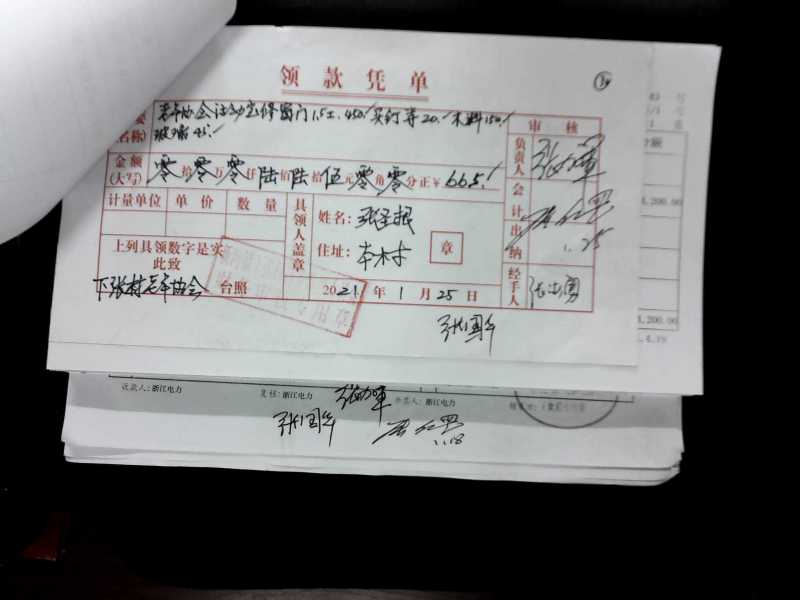 领款凭单
要 老年协会活动室修窗门1.5工.450/买钉等20./木料150./
名称) 玻璃45./
审核
金额(大写) 零拾零万零仟陆佰陆拾伍元零角零分正¥665./
负责人
会计
1.25
出纳
经手人
计量单位 单价 数量
具领人盖章
姓名:
住址: 本村 章
上列具领数字是实
此致
下张村老年协会 台照
2021年1月25日
张国午
,200.00
,200.00
.4.19
收款人:浙江电力 复核:浙江电力 开票人:浙江电力
张国午
1.18